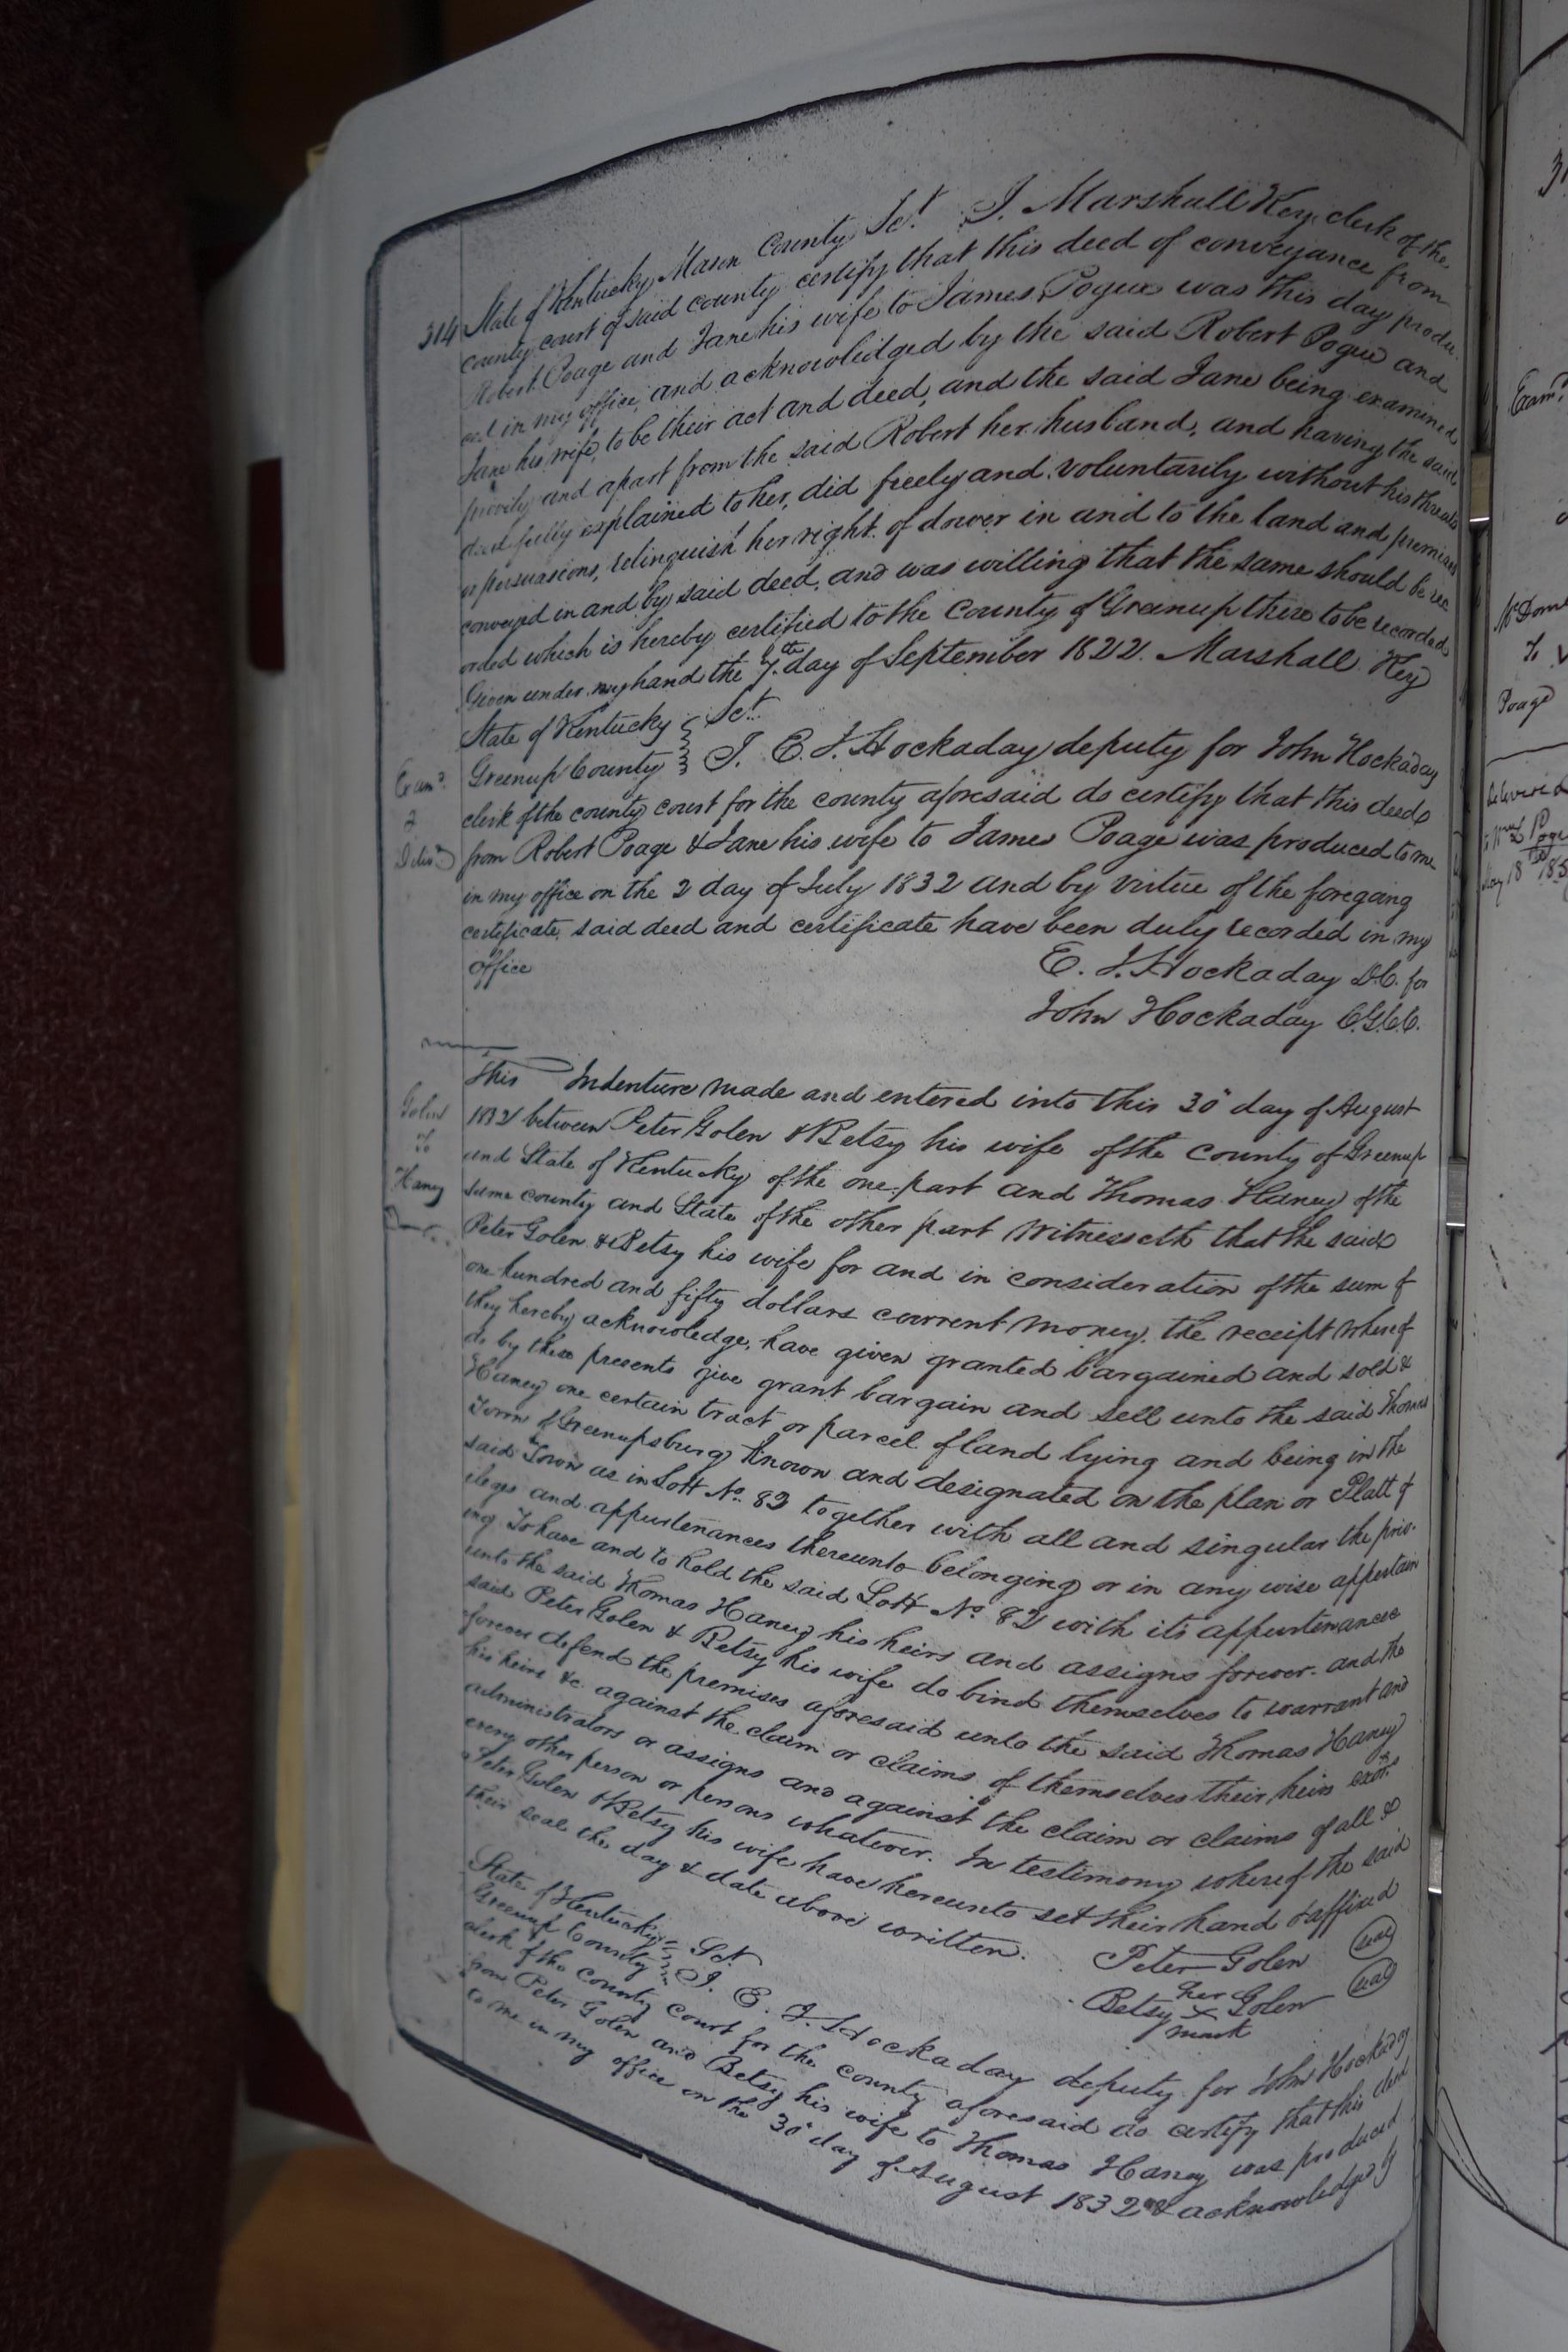 314
State of Kentucky Mason County Sct. I. Marshall Key, clerk of the
county court of said county certify that this deed of conveyance from
Robert Poage and Jane his wife to James Pogue was this day produ-
ced in my office, and acknowledged by the said Robert Pogue and
Jane his wife, to be their act and deed, and the said Jane being examined
privily and apart from the said Robert her husband, and having the said
deed fully explained to her, did freely and voluntarily without his threats
or persuasions, relinquish her right of dower in and to the land and premises
conveyed in and by said deed, and was willing that the same should be rec
orded which is hereby certified to the County of Greenup there to be recorded
Given under my hand the 7th day of September 1822. Marshall Key
State of Kentucky Sct.
Greenup County I. E. J. Hockaday deputy for John Hockaday
Exam.d
&
Deliv.d
clerk of the county court for the county aforesaid do certify that this deed
from Robert Poage & Jane his wife to James Poage was produced to me
in my office on the 2 day of July 1832 and by virtue of the foregoing
certificate, said deed and certificate have been duly recorded in my
office
E. J. Hockaday D.C. for
John Hockaday C.G.C.C.
Golen
to
Haney
This Indenture made and entered into this 30 day of August
1832 between Peter Golen & Betsy his wife of the County of Greenup
and State of Kentucky of the one part and Thomas Haney of the
same county and State of the other part Witnesseth that the said
Peter Golen & Betsy his wife for and in consideration of the sum of
one hundred and fifty dollars current money, the receipt whereof
they hereby acknowledge, have given granted bargained and sold &
do by these presents give grant bargain and sell unto the said Thomas
Haney one certain tract or parcel of land lying and being in the
Town of Greenupsburg known and designated on the plan or Platt of
said Town as in Lott No. 82 together with all and singular the priv-
ileges and appurtenances thereunto belonging or in any wise appertain
ing. To have and to hold the said Lott No. 82 with its appurtenances
unto the said Thomas Haney his heirs and assigns forever. and the
said Peter Golen & Betsy his wife do bind themselves to warrant and
forever defend the premises aforesaid unto the said Thomas Haney
his heirs &c. against the claim or claims of themselves their heirs exors
administrators or assigns and against the claim or claims of all &
every other person or persons whatever. In testimony whereof the said
Peter Golen & Betsy his wife have hereunto set their hand & affixed
their seal the day & date above written.
Peter Golen seal
her
Betsy x Golen seal
mark
State of Kentucky Sct.
Greenup County I. E. J. Hockaday deputy for John Hockaday
clerk of the county court for the county aforesaid do certify that this deed
from Peter Golen and Betsy his wife to Thomas Haney was produced
to me in my office on the 30 day of August 1832 & acknowledged by
Exam.d
McDow
to
Poage
delivered
Poge
May 18